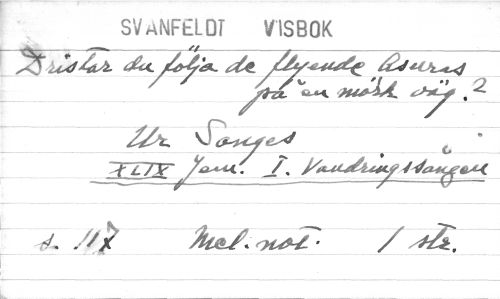 SVANFELDT VISBOK
Dristar du följa de flyende Asuras
på en mörk väg?
Ur Songes
XLIX Jem. I. Vandringssången
s. 117 Mel. not. 1 str.